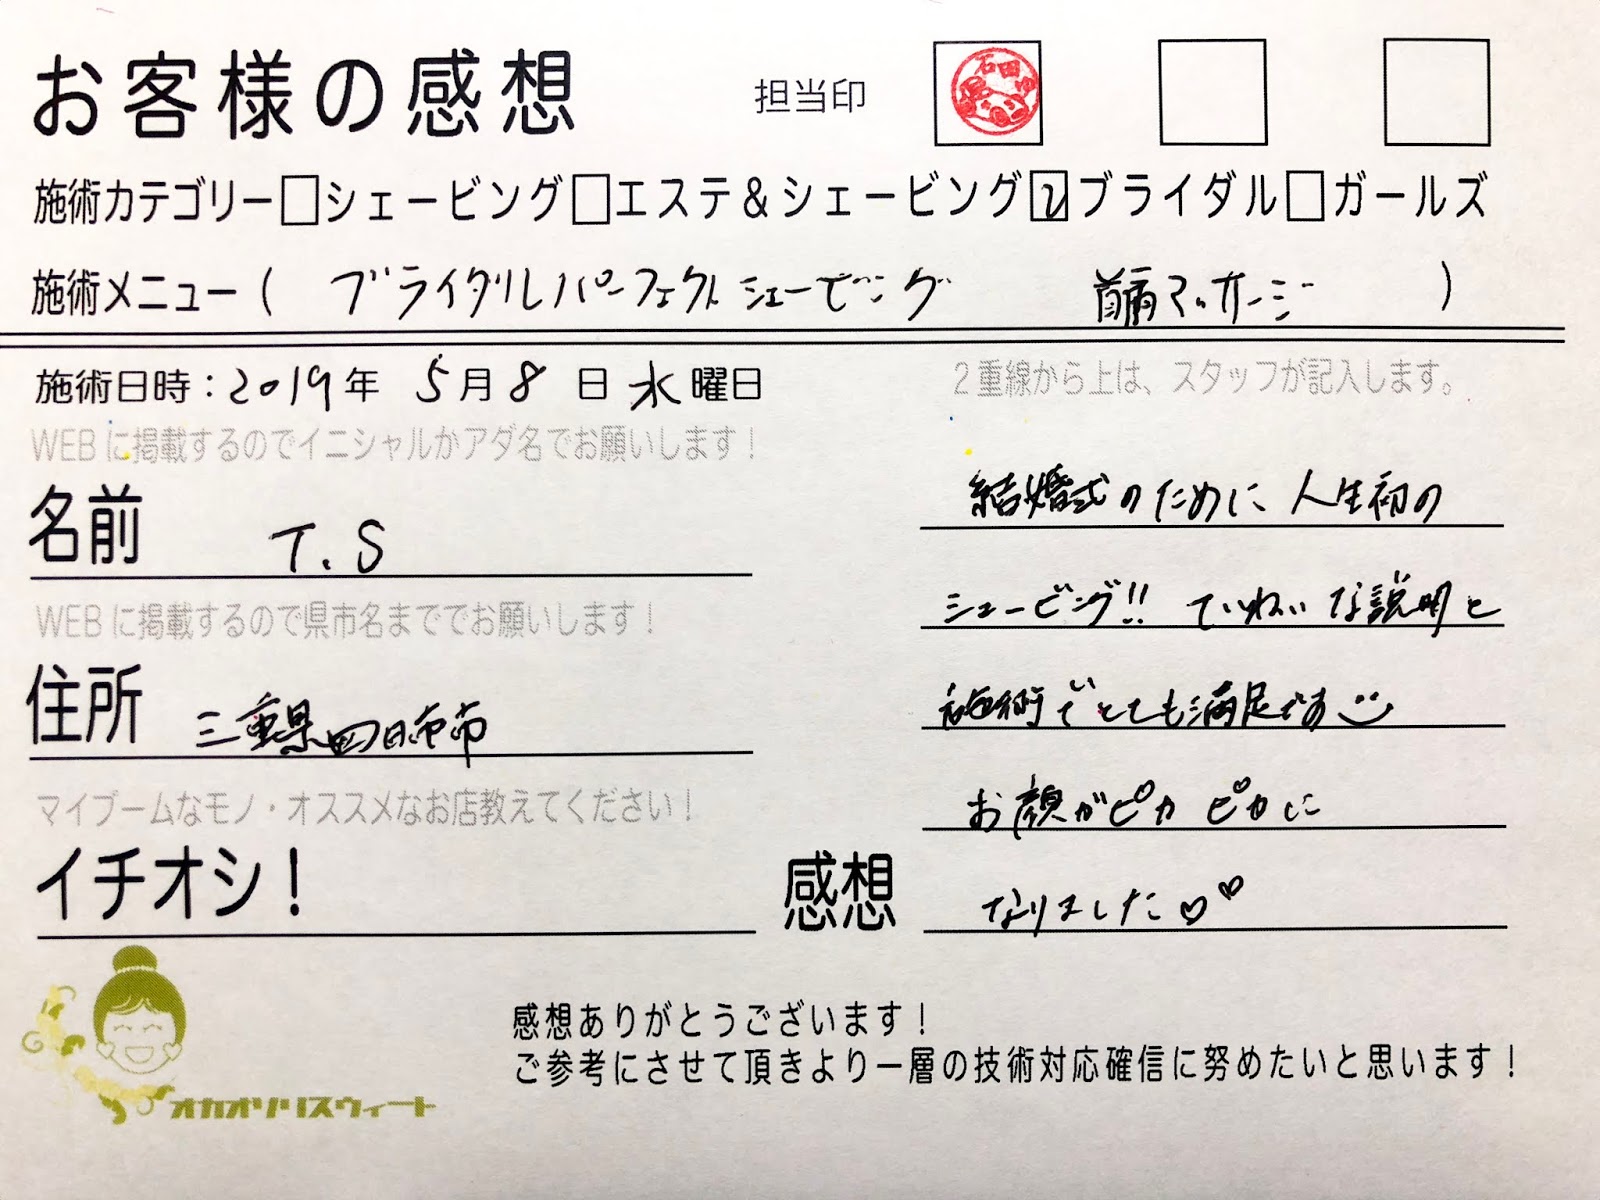 お客様の感想
担当印
石田
施術カテゴリー□シェービング□エステ＆シェービング☑ブライダル□ガールズ
施術メニュー（ ブライダルパーフェクトシェービング 首肩マッサージ ）
施術日時：2019年 5月8日 水曜日
２重線から上は、スタッフが記入します。
WEBに掲載するのでイニシャルかアダ名でお願いします！
名前 T.S
WEBに掲載するので県市名まででお願いします！
住所 三重県四日市市
マイブームなモノ・オススメなお店教えてください！
イチオシ！
感想
結婚式のために人生初の
シェービング!! ていねいな説明と
施術でとても満足です
お顔がピカピカに
なりました♡♡
オカオソリスウィート
感想ありがとうございます！
ご参考にさせて頂きより一層の技術対応確信に努めたいと思います！